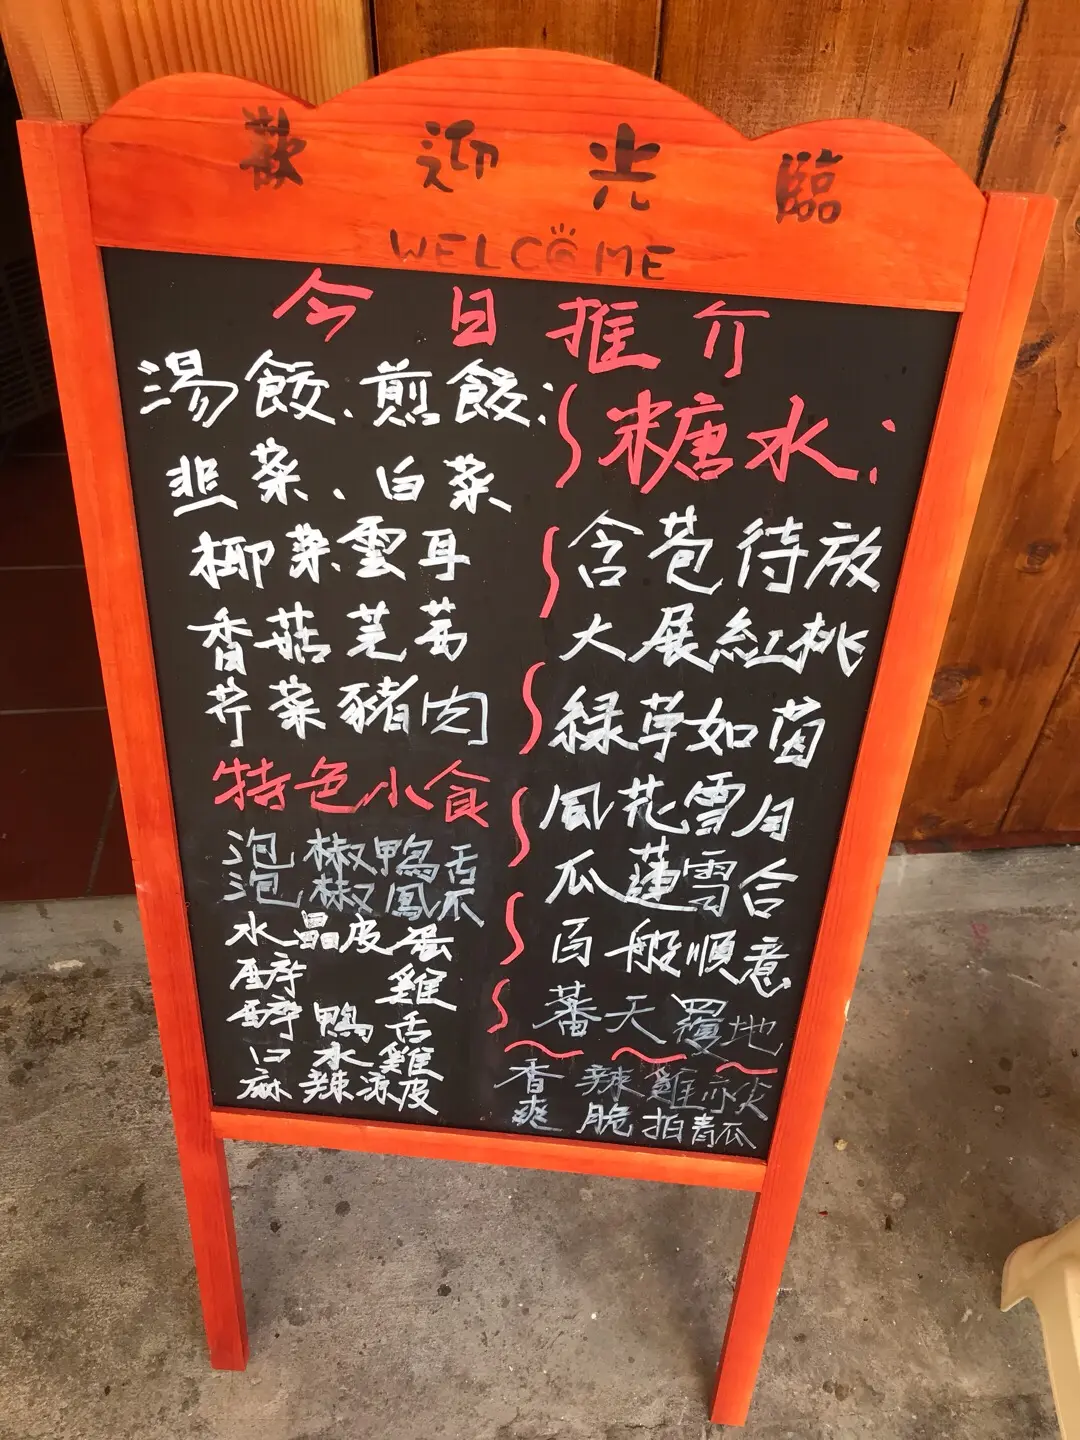 歡迎光臨
WELCOME
今日推介
湯餃、煎餃:
韮菜、白菜
椰菜雲耳
香菇芫茜
芹菜豬肉
特色小食
泡椒鴨舌
泡椒鳳爪
水晶皮蛋
醉雞
醉鴨舌
口水雞
麻辣涼皮
糖水:
含苞待放
大展紅桃
綠草如茵
風花雪月
瓜蓮雪合
百般順意
蕃天覆地
香辣雞亦尖
爽脆拍青瓜